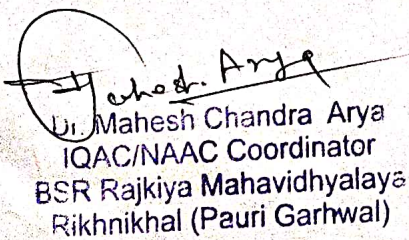 Mahesh. Arya
Dr. Mahesh Chandra Arya
IQAC/NAAC Coordinator
BSR Rajkiya Mahavidhyalaya
Rikhnikhal (Pauri Garhwal)